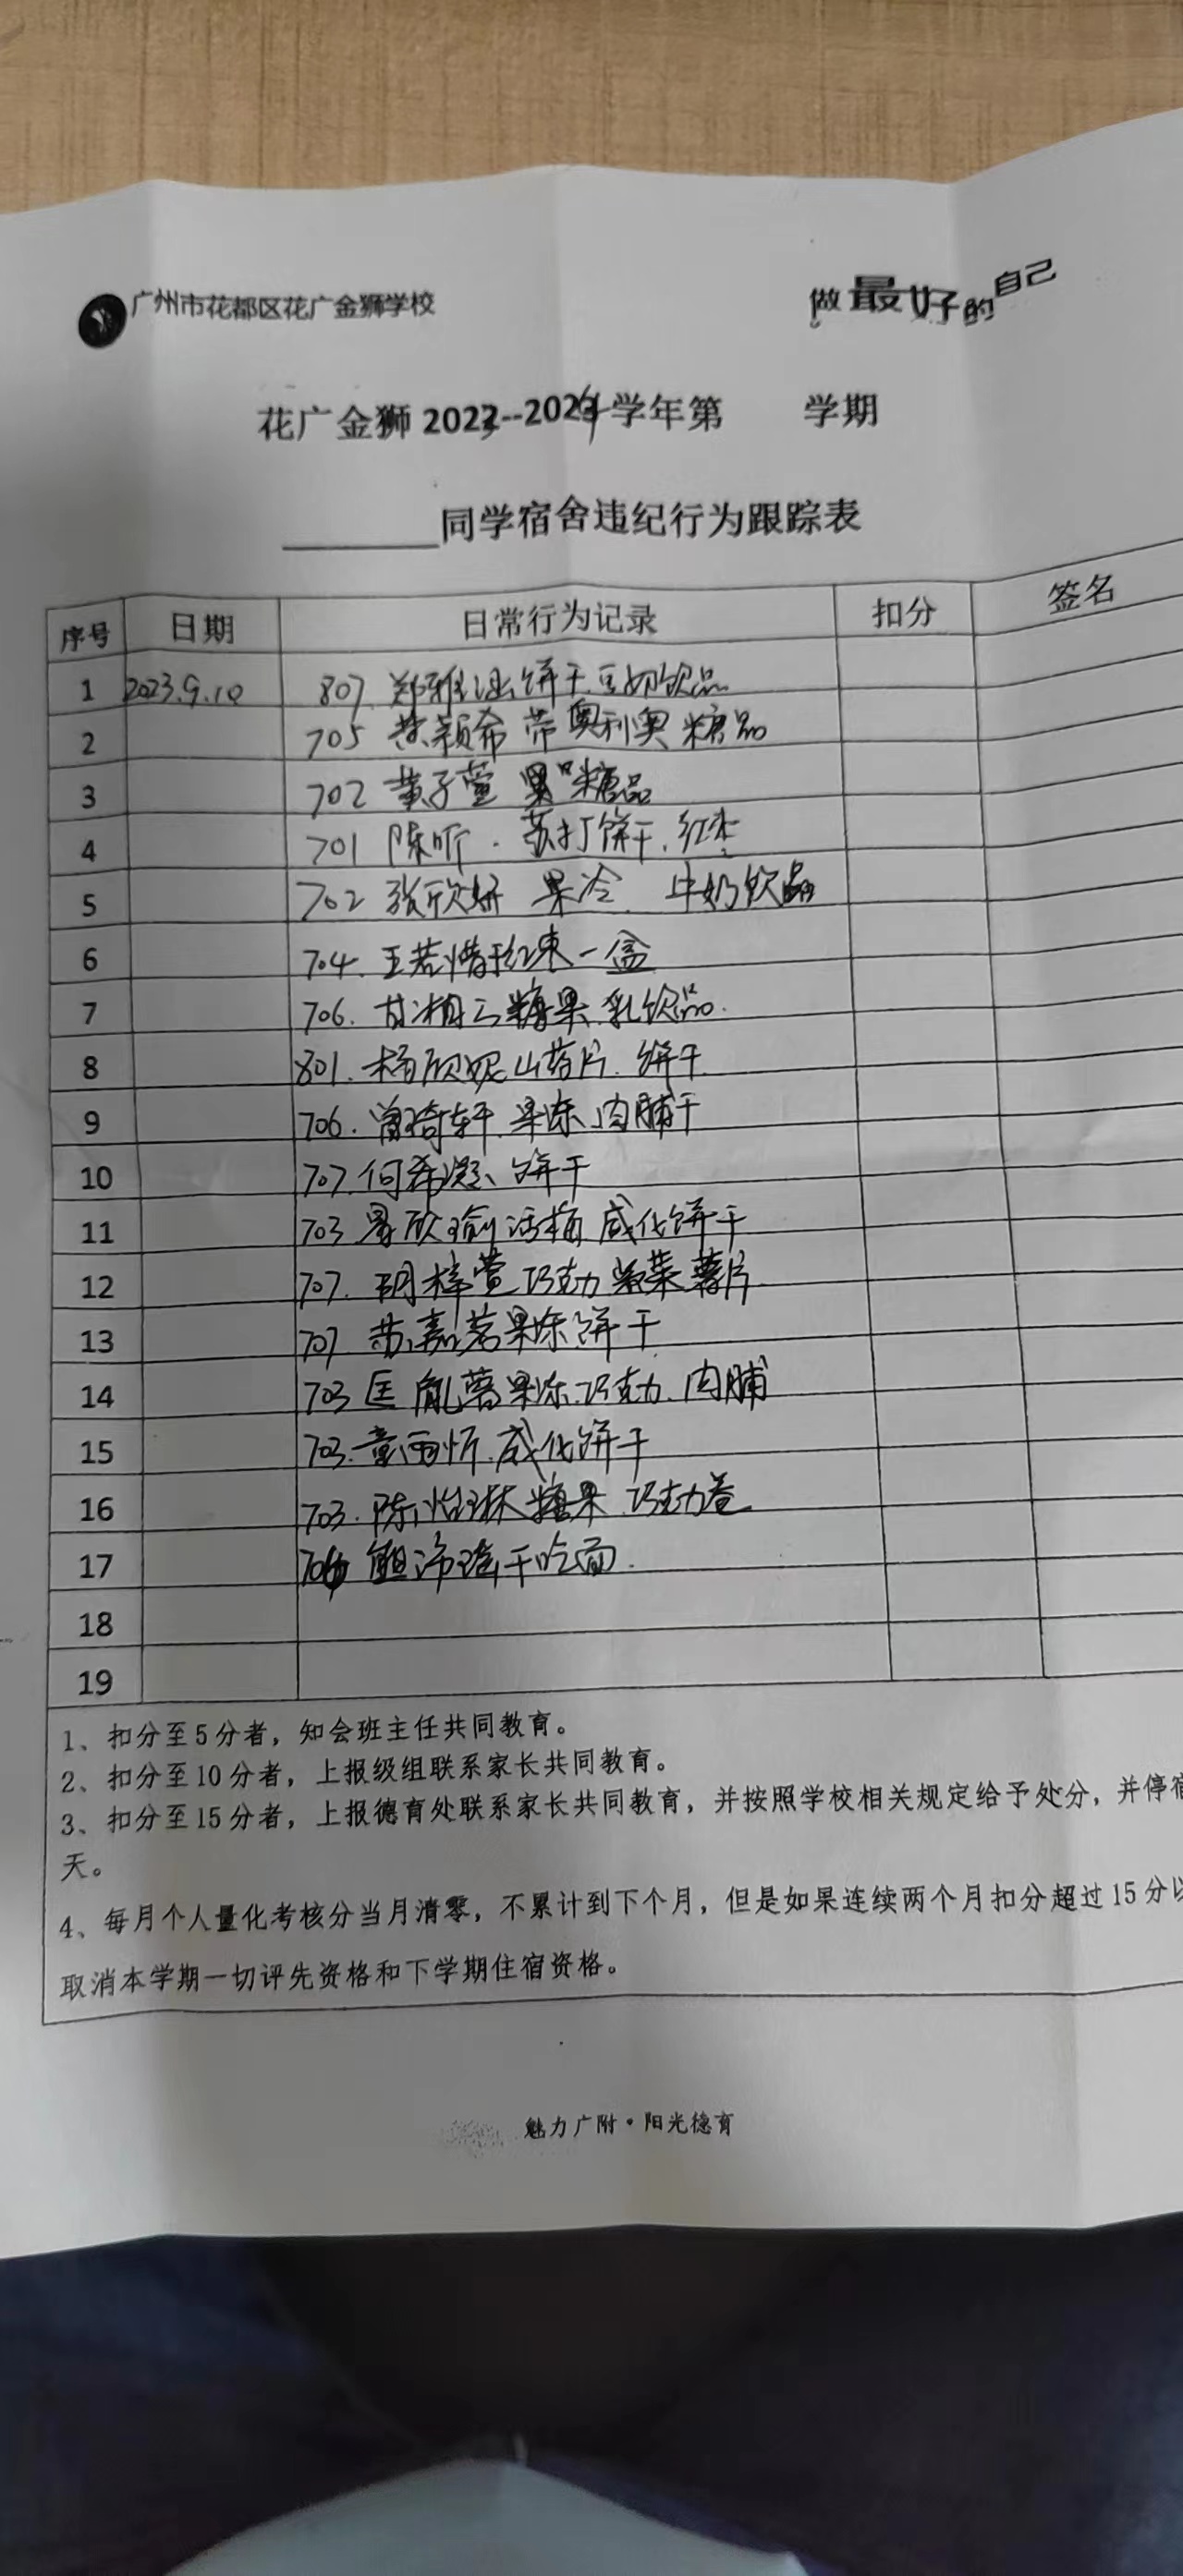 广州市花都区花广金狮学校
做最好的自己
花广金狮 2023--2024 学年第 学期
同学宿舍违纪行为跟踪表
序号 日期 日常行为记录 扣分 签名
1 2023.9.10 807. 郑雅 饼干.豆奶饮品
2 705 黄颖希 带奥利奥 糖品
3 702 黄子萱 糖品
4 701 陈昕. 苏打饼干.红枣
5 702 张欣妍 果冷 牛奶饮品
6 704. 王若惜 红枣一盒
7 706. 甘湘云 糖果.乳饮品.
8 801. 杨欣妮 山药片. 饼干.
9 706. 曾琦轩. 果冻.肉脯干
10 707.何希凝、饼干
11 703 欣瑜 话梅 威化饼干
12 707. 胡梓萱 巧克力 紫菜 薯片
13 707 苏嘉茗 果冻.饼干
14 703 匡 果冻.巧克力.肉脯
15 703.童雨忻.威化饼干
16 703. 陈怡琳 糖果.巧克力卷
17 熊 干吃面.
18
19
1、扣分至5分者，知会班主任共同教育。
2、扣分至10分者，上报级组联系家长共同教育。
3、扣分至15分者，上报德育处联系家长共同教育，并按照学校相关规定给予处分，并停宿
天。
4、每月个人量化考核分当月清零，不累计到下个月，但是如果连续两个月扣分超过15分以
取消本学期一切评先资格和下学期住宿资格。
魅力广附·阳光德育